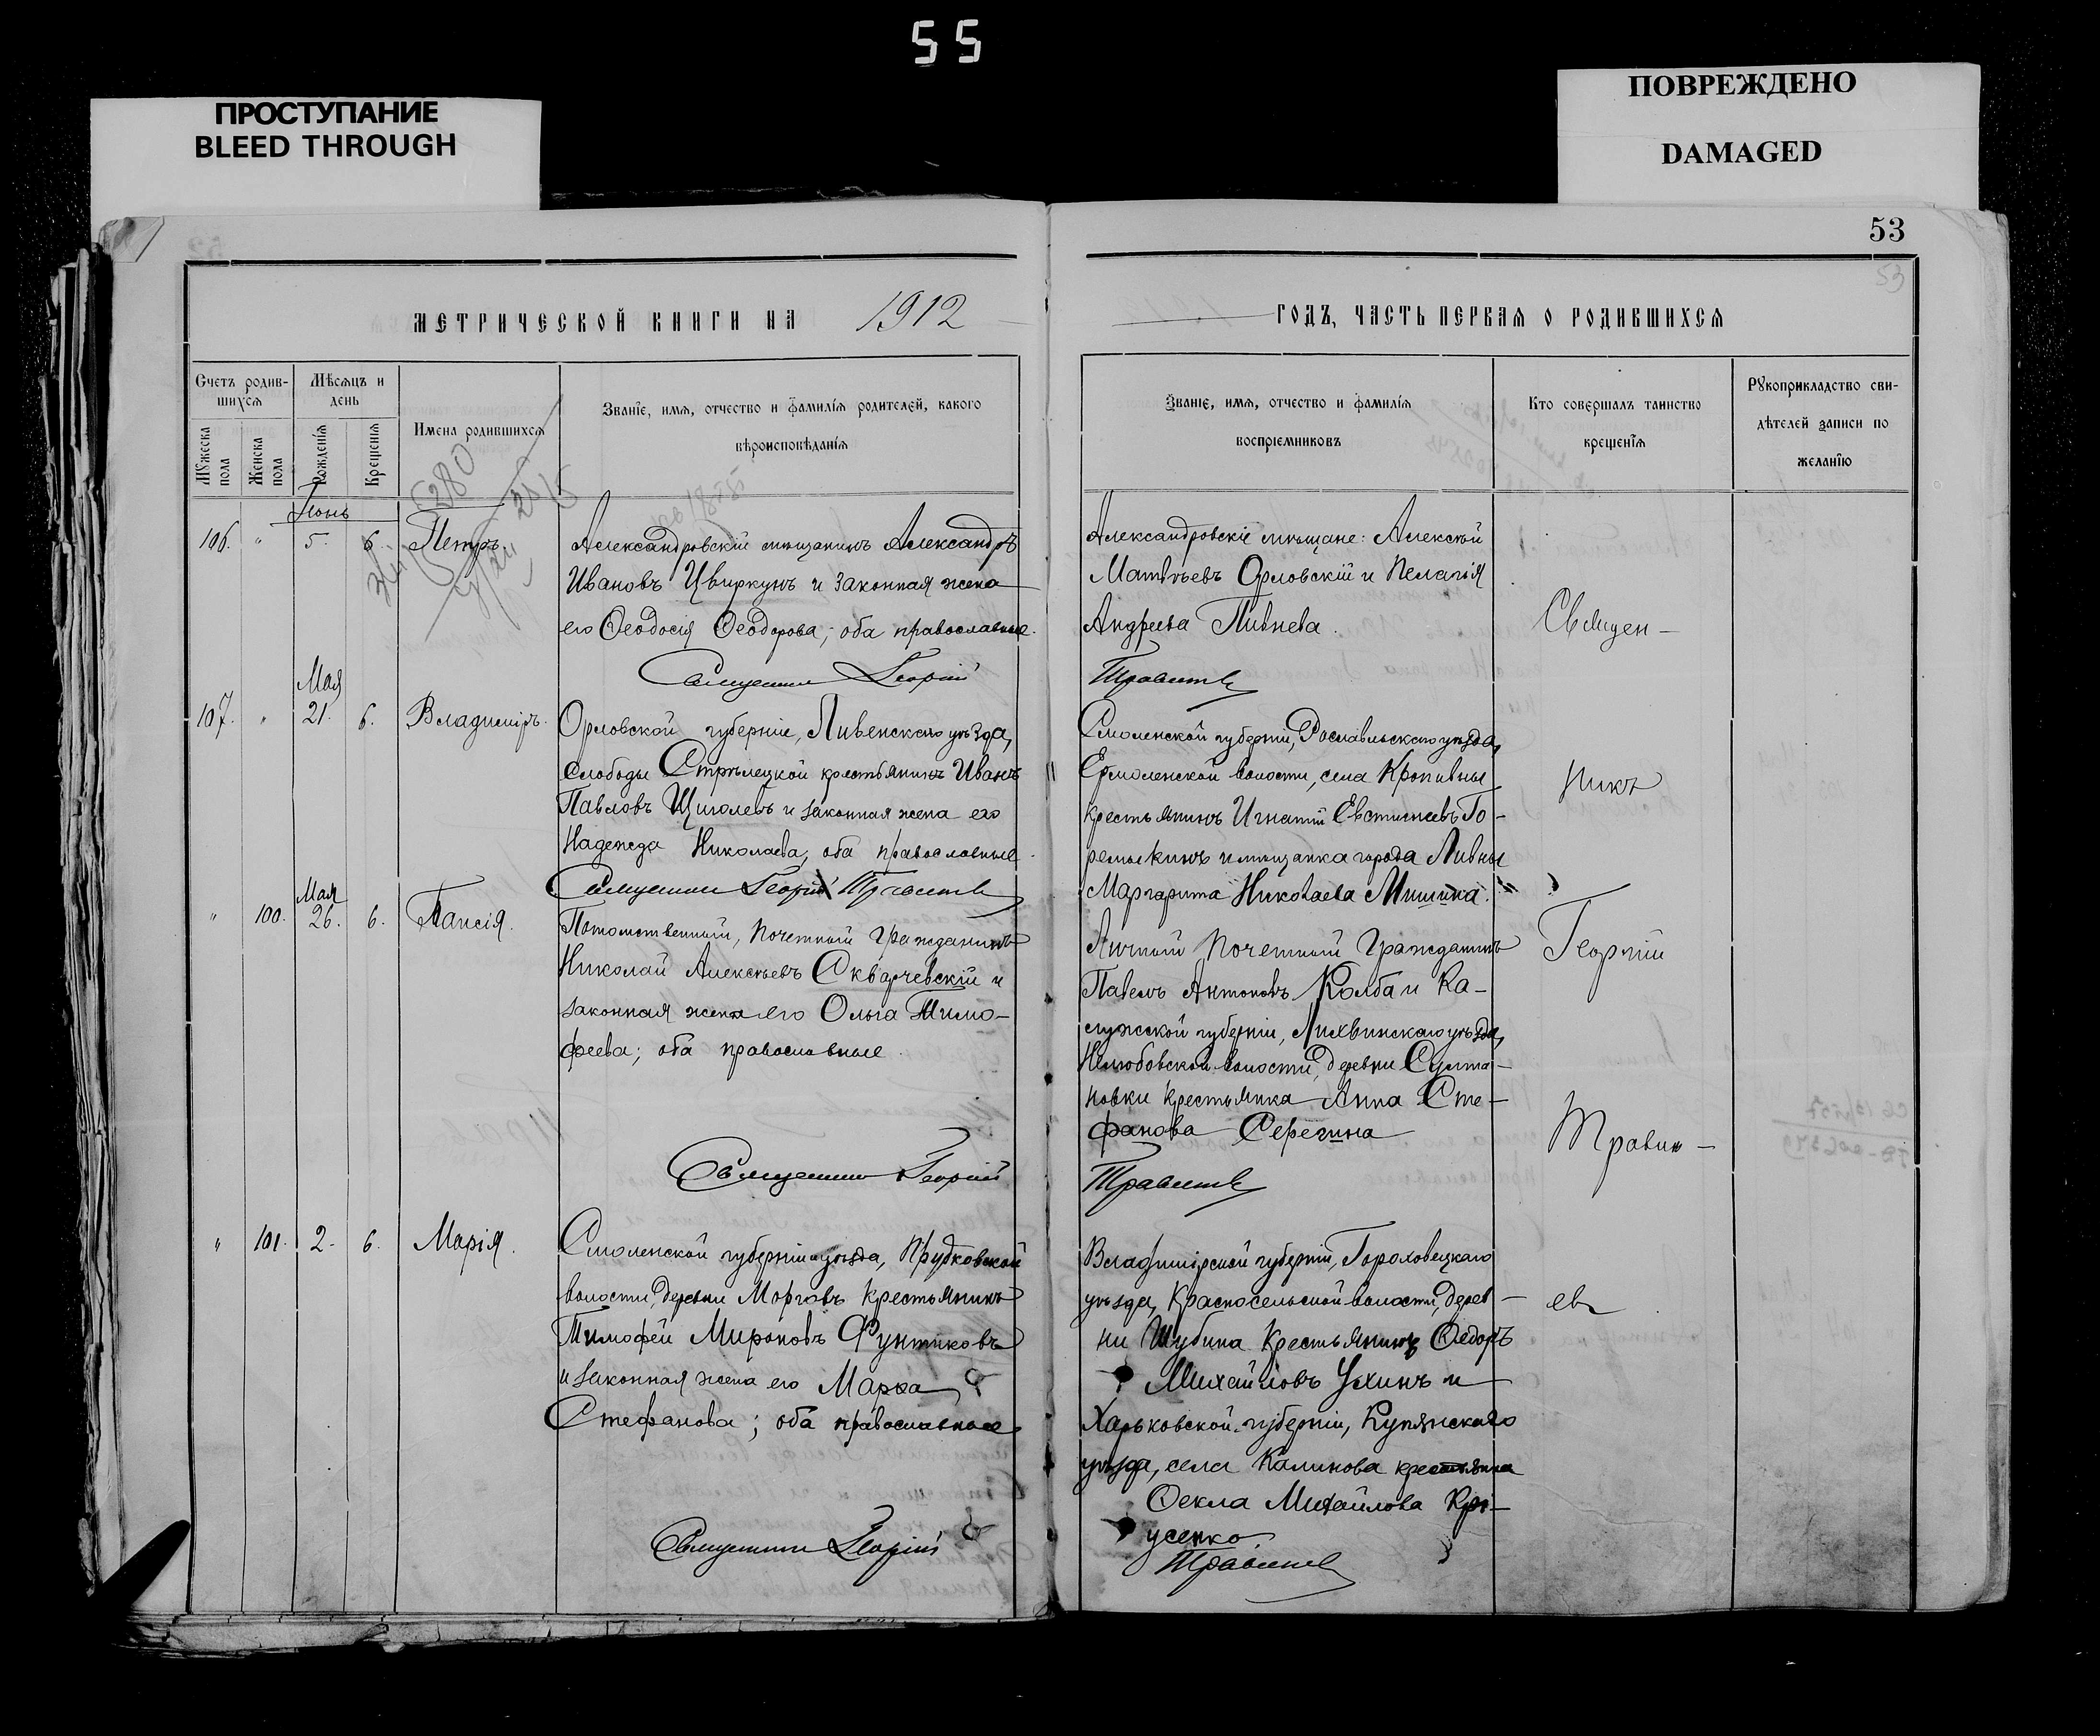 55
ПРОСТУПАНИЕ
BLEED THROUGH
ПОВРЕЖДЕНО
DAMAGED
53
53
МЕТРИЧЕСКОЙ КНИГИ НА 1912
ГОДЪ, ЧАСТЬ ПЕРВАЯ О РОДИВШИХСЯ
Счетъ родив-
шихся
Мѣсяцъ и
день
Мужеска
пола
Женска
пола
Рожденія
Крещенія
Имена родившихся
Званіе, имя, отчество и фамилія родителей, какого
вѣроисповѣданія
Званіе, имя, отчество и фамилія
воспріемниковъ
Кто совершалъ таинство
крещенія
Рукоприкладство сви-
дѣтелей записи по
желанію
Іюнь
106. " 5. 6. Петръ.
Александровскій мѣщанинъ Александръ
Ивановъ Цвиркунъ и законная жена
его Ѳеодосія Ѳеодорова; оба православные.
Священникъ Георгій
Александровскіе мѣщане: Алексѣй
Матвѣевъ Орловскій и Пелагія
Андреева Пивнева.
Травинъ
Священ-
Мая
107. " 21. 6. Владиміръ.
Орловской губерніи, Ливенскаго уѣзда,
Слободы Стрѣлецкой крестьянинъ Иванъ
Павловъ Щиголевъ и законная жена его
Надежда Николаева; оба православные.
Священникъ Георгій
Смоленской губерніи, Рославльскаго уѣзда,
Ермоленской волости, села Кропивны
крестьянинъ Игнатій Евстигнеевъ Го-
ремыкинъ и мѣщанка города Ливны
Маргарита Николаева Мишина.
никъ
Мая
" 100. 26. 6. Таисія.
Потомственный, Почетный Гражданинъ
Николай Алексѣевъ Скварчевскій и
законная жена его Ольга Тимо-
феева; оба православные.
Священникъ Георгій
Личный Почетный Гражданинъ
Павелъ Антоновъ Колба и Ка-
лужской губерніи, Лихвинскаго уѣзда,
волости, деревни Султа-
новки крестьянка Анна Сте-
фанова Серегина
Георгій
Травин-
" 101. 2. 6. Марія.
Смоленской губерніи и уѣзда, Прудковской
волости, деревни Моргавъ крестьянинъ
Тимофей Мироновъ Фунтиковъ
и законная жена его
Стефанова; оба православные
Священникъ Георгій
Владимірской губерніи, Гороховецкаго
уѣзда, Красносельской волости, дерев-
ни Шубина крестьянинъ Ѳедоръ
Михайловъ Ухинъ и
Харьковской губерніи, Купянскаго
уѣзда, села Калинова крестьянка
Ѳекла Михайлова
усенко.
евъ